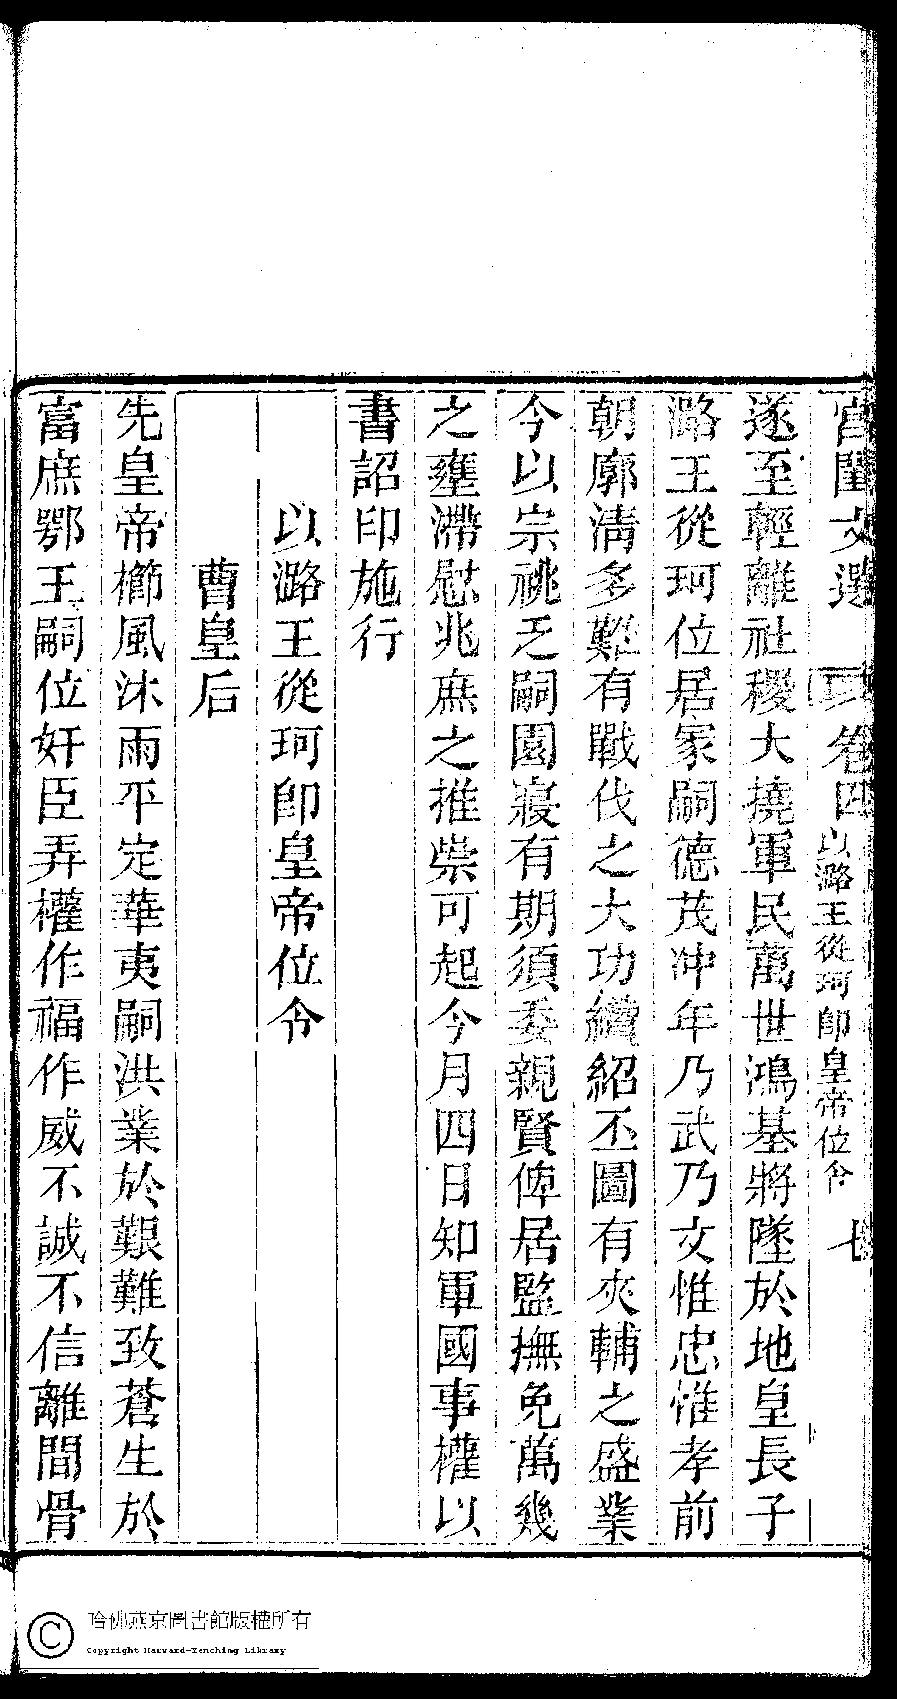 宮閨文選 卷四 以潞王從珂即皇帝位令 七
遂至輕離社稷大撓軍民萬世鴻基將墜於地皇長子
潞王從珂位居冢嗣德茂冲年乃武乃文惟忠惟孝前
朝廓清多難有戰伐之大功纘紹丕圖有夾輔之盛業
今以宗祧乏嗣園寢有期須委親賢俾居監撫免萬幾
之壅滯慰兆庶之推崇可起今月四日知軍國事權以
書詔印施行
以潞王從珂即皇帝位令
曹皇后
先皇帝櫛風沐雨平定華夷嗣洪業於艱難致蒼生於
富庶鄂王嗣位奸臣弄權作福作威不誠不信離間骨
哈佛燕京圖書館版權所有
Copyright Harvard-Yenching Library